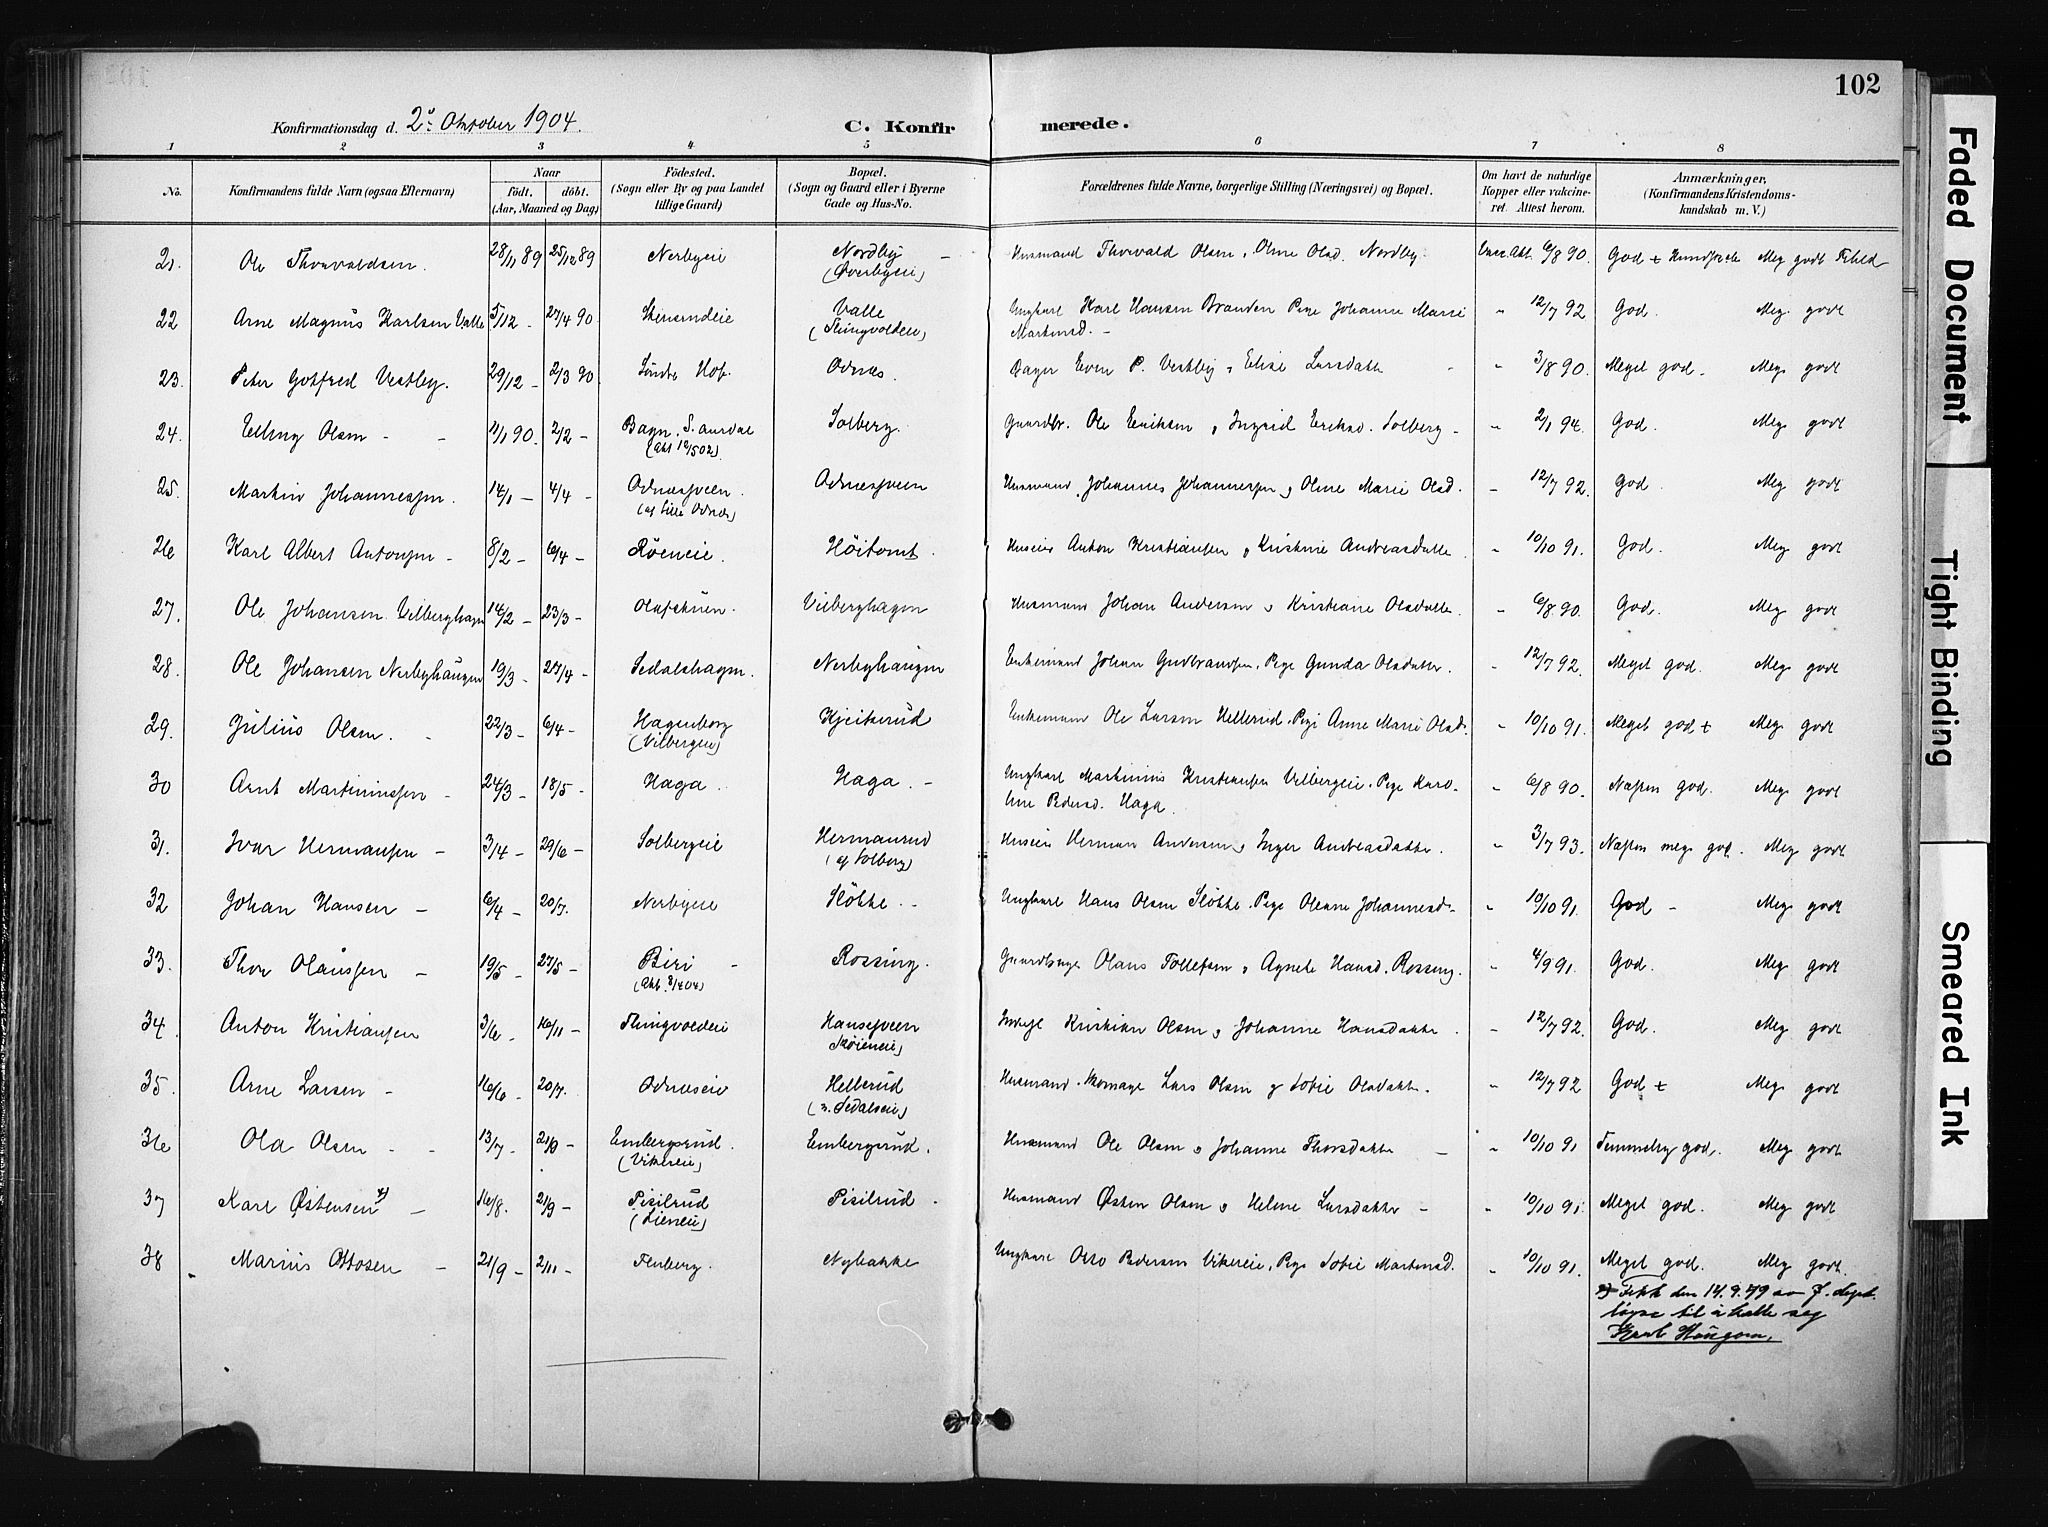 102
Konfirmationsdag d. 2. Oktober 1904.
C. Konfirmerede.
1 2 3 4 5 6 7 8
No. Konfirmandens fulde Navn (ogsaa Efternavn) Naar født, døbt. (Aar, Maaned og Dag) Fødested. (Sogn eller By og paa Landet tillige Gaard) Bopæl. (Sogn og Gaard eller i Byerne Gade og Hus-No. Forældrenes fulde Navne, borgerlige Stilling (Næringsvei) og Bopæl. Om havt de naturlige Kopper eller vakcineret. Attest herom. Anmærkninger, (Konfirmandens Kristendomskundskab m. V.)
21. Ole Thorvaldsen. 28/11 89 25/12 89 Nerbyeie Nordby (Øverbyeie) Husmand Thorvald Olsen, Oline Olsd. Nordby. 6/8 90. God + Meg godt
22 Arne Magnus Karlsen Valle 5/12 - 27/4 90 Valle (Thingvoldeie) Ungkarl Karl Hansen Branden Pige Johanne Marie Martinsd. - " 12/7 92 God. Meg godt
23. Peter Gotfred Vestby. 29/12 - 2/3 90 Søndre Hof. Odnæs. Even P. Vestby, Elise Larsdatter " 3/8 90. Meget god. Meg godt
24. Erling Olsen - 11/1 90. 2/2 - Bagn. S. Aurdal Solberg. Gaardbr. Ole Eriksen, Ingrid Eriksd. Solberg - " 2/1 94. God. Meg godt
25. Martin Johannessen. 14/1 - 4/4 - Odnæsveen. (af Lille Odnæs) Odnæsveen Husmand Johannes Johannessen, Oline Marie Olsd. " 12/7 92. God. Meg godt
26 Karl Albert Antonsen - 8/2 - 6/4 - Røeneie. Høitomt. Huseier Anton Kristiansen, Kristine Andreasdatter. " 10/10 91. God. Meg godt
27. Ole Johansen Vilberghagen 14/2 - 23/3 - Vilberghagen Husmand Johan Andersen, Kristiane Olsdatter. " 6/8 90. God. Meg godt
28. Ole Johansen Nerbyhaugen 19/3 - 27/4 - Sedalshagen. Nerbyhaugen Enkemand Johan Gudbrandsen, Pige Gunda Olsdatter. " 12/7 92. Meget god. Meg godt
29. Julius Olsen. - 22/3 - 6/4 - Hagenborg (Vilbergeie) Kjeikerud Enkemann Ole Larsen Hellerud, Pige Anne Marie Olsd. " 10/10 91. Meget god + Meg godt
30 Arnt Martiniussen - 24/3 - 18/5 - Haga. Haga. - Ungkarl Martinius Kristiansen Vilbergeie, Pige Karoline Pedersd. Haga. " 6/8 90. Næsten god. Meg godt
31. Ivar Hermansen - 3/4 - 29/6 - Solbergeie Hermanrud (af Solberg) Huseier Herman Andersen, Inger Andreasdatter. " 3/7 93. Næsten meget god. Meg godt
32 Johan Hansen - 6/4 - 20/7. Nerbyeie Sløtte. - Ungkarl Hans Olsen Sløtte, Pige Oleane Johannesd. " 10/10 91. God - Meg godt
33. Thor Olaussen - 19/5 - 27/5 - Biri - Rossing. Gaardbruger Olaus Tollefsen, Agnete Hansd. Rossing. " 4/9 91. God. Meg godt
34 Anton Kristiansen 3/6 - 16/11 - Thingvoldeie Hansesveen Skøieneie) Kristian Olsen, Johanne Hansdatter. " 12/7 92. God. Meg godt
35. Arne Larsen - 16/6 - 20/7. Odnæseie Hellerud (n. Sedalseie) Husmand Lars Olsen, Sofie Olsdatter. " 12/7 92 God + Meg godt
36 Ola Olsen - - 13/7 - 21/9 - Embergsrud. (Vikereie) Embergsrud. Husmand Ole Olsen, Johanne Thorsdatter - " 10/10 91 Temmelig god. Meg godt
37 Karl Østensen x) - 16/8. 21/9 - Pisilrud (Lieneie) Pisilrud. Husmand Østen Olsen, Helene Larsdatter - " 10/10 91. Meget god. Meg godt
38 Marius Ottosen - 21/9 - 2/11 - Fluberg. Nybakke Ungkarl Otto Pedersen Vikereie, Pige Sofie Martinsd. " 10/10 91. Meget god. Meg godt.
x) Fikk den 14.9.49 av
løyve til å kalle seg
Karl Haugom.
Faded Document
Tight Binding
Smeared Ink